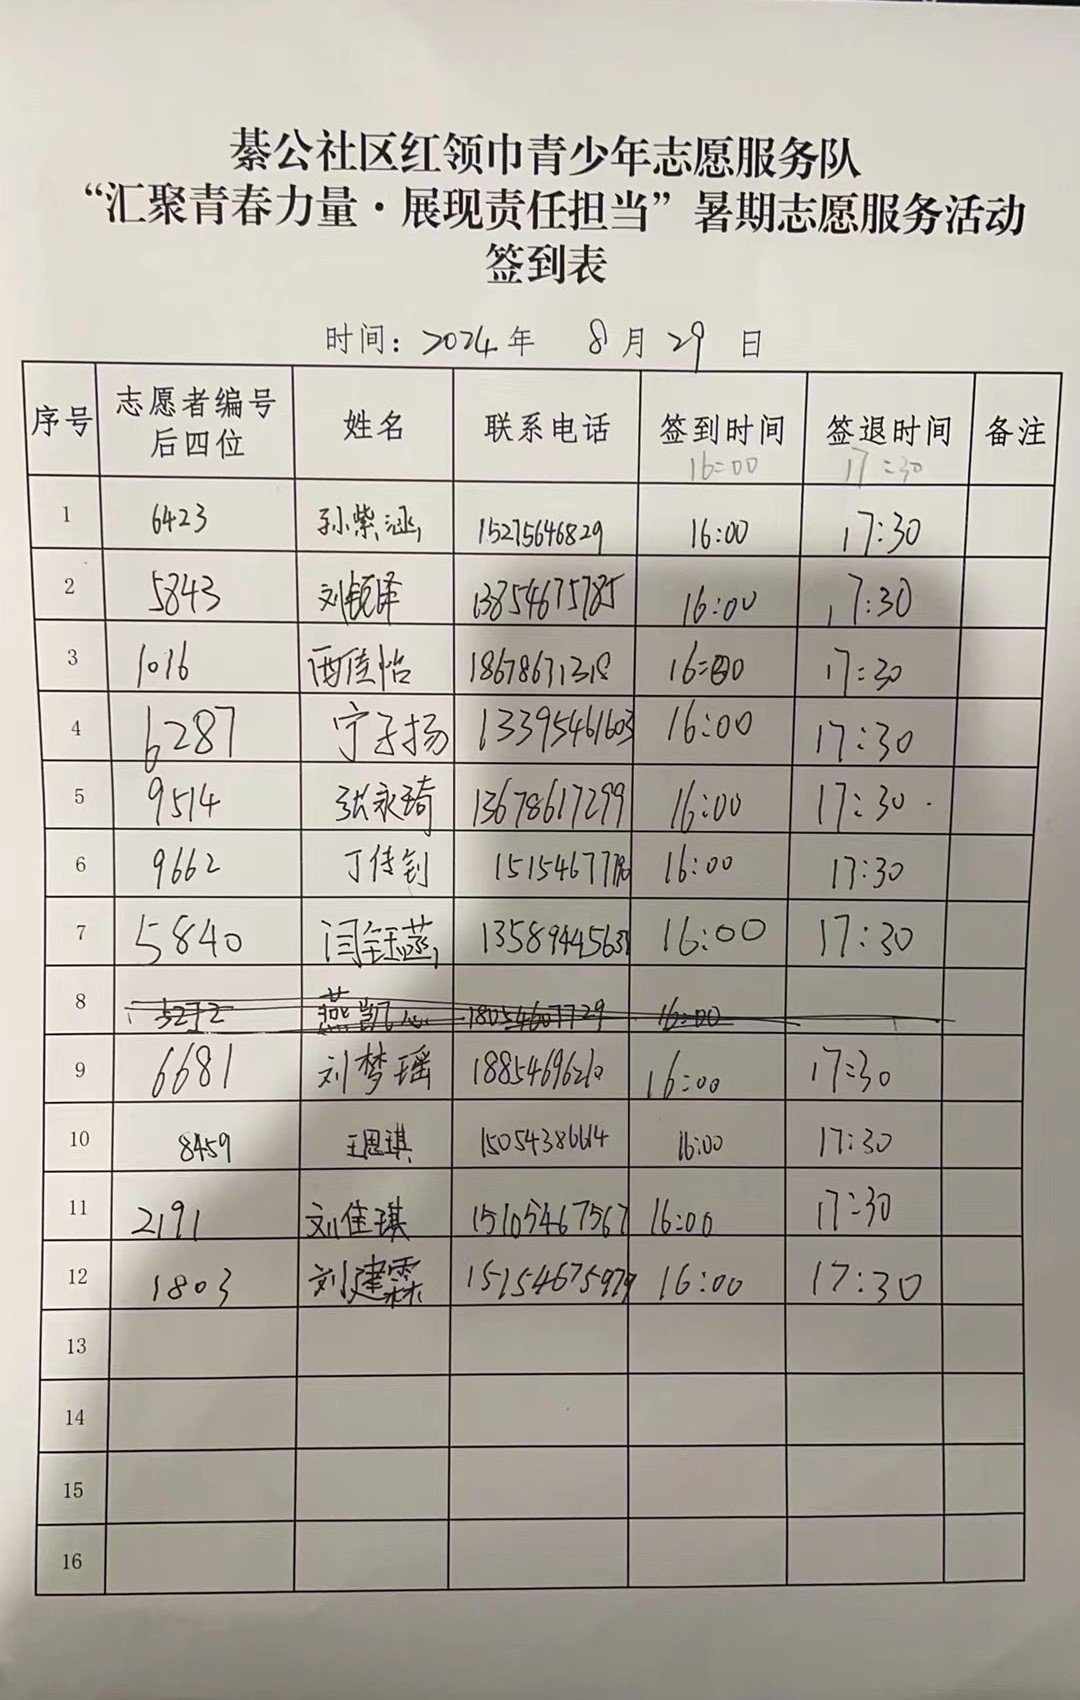 綦公社区红领巾青少年志愿服务队
“汇聚青春力量·展现责任担当”暑期志愿服务活动
签到表
时间：2024年 8月29 日
序号 志愿者编号后四位 姓名 联系电话 签到时间 16:00 签退时间 17:30 备注
1 6423 孙紫涵 15275646829 16:00 17:30
2 5843 刘锐泽 13854675785 16:00 17:30
3 1016 西佳怡 18678671318 16:00 17:30
4 6287 宁子扬 13395461603 16:00 17:30
5 9514 张永琦 13678617299 16:00 17:30
6 9662 丁传钊 16:00 17:30
7 5840 闫钰菡 16:00 17:30
8 5272 燕凯心 18054607729 16:00
9 6681 刘梦瑶 18854696210 16:00 17:30
10 8459 王思琪 15054386614 16:00 17:30
11 2191 刘佳琪 15105467567 16:00 17:30
12 1803 刘建霖 15154675979 16:00 17:30
13
14
15
16